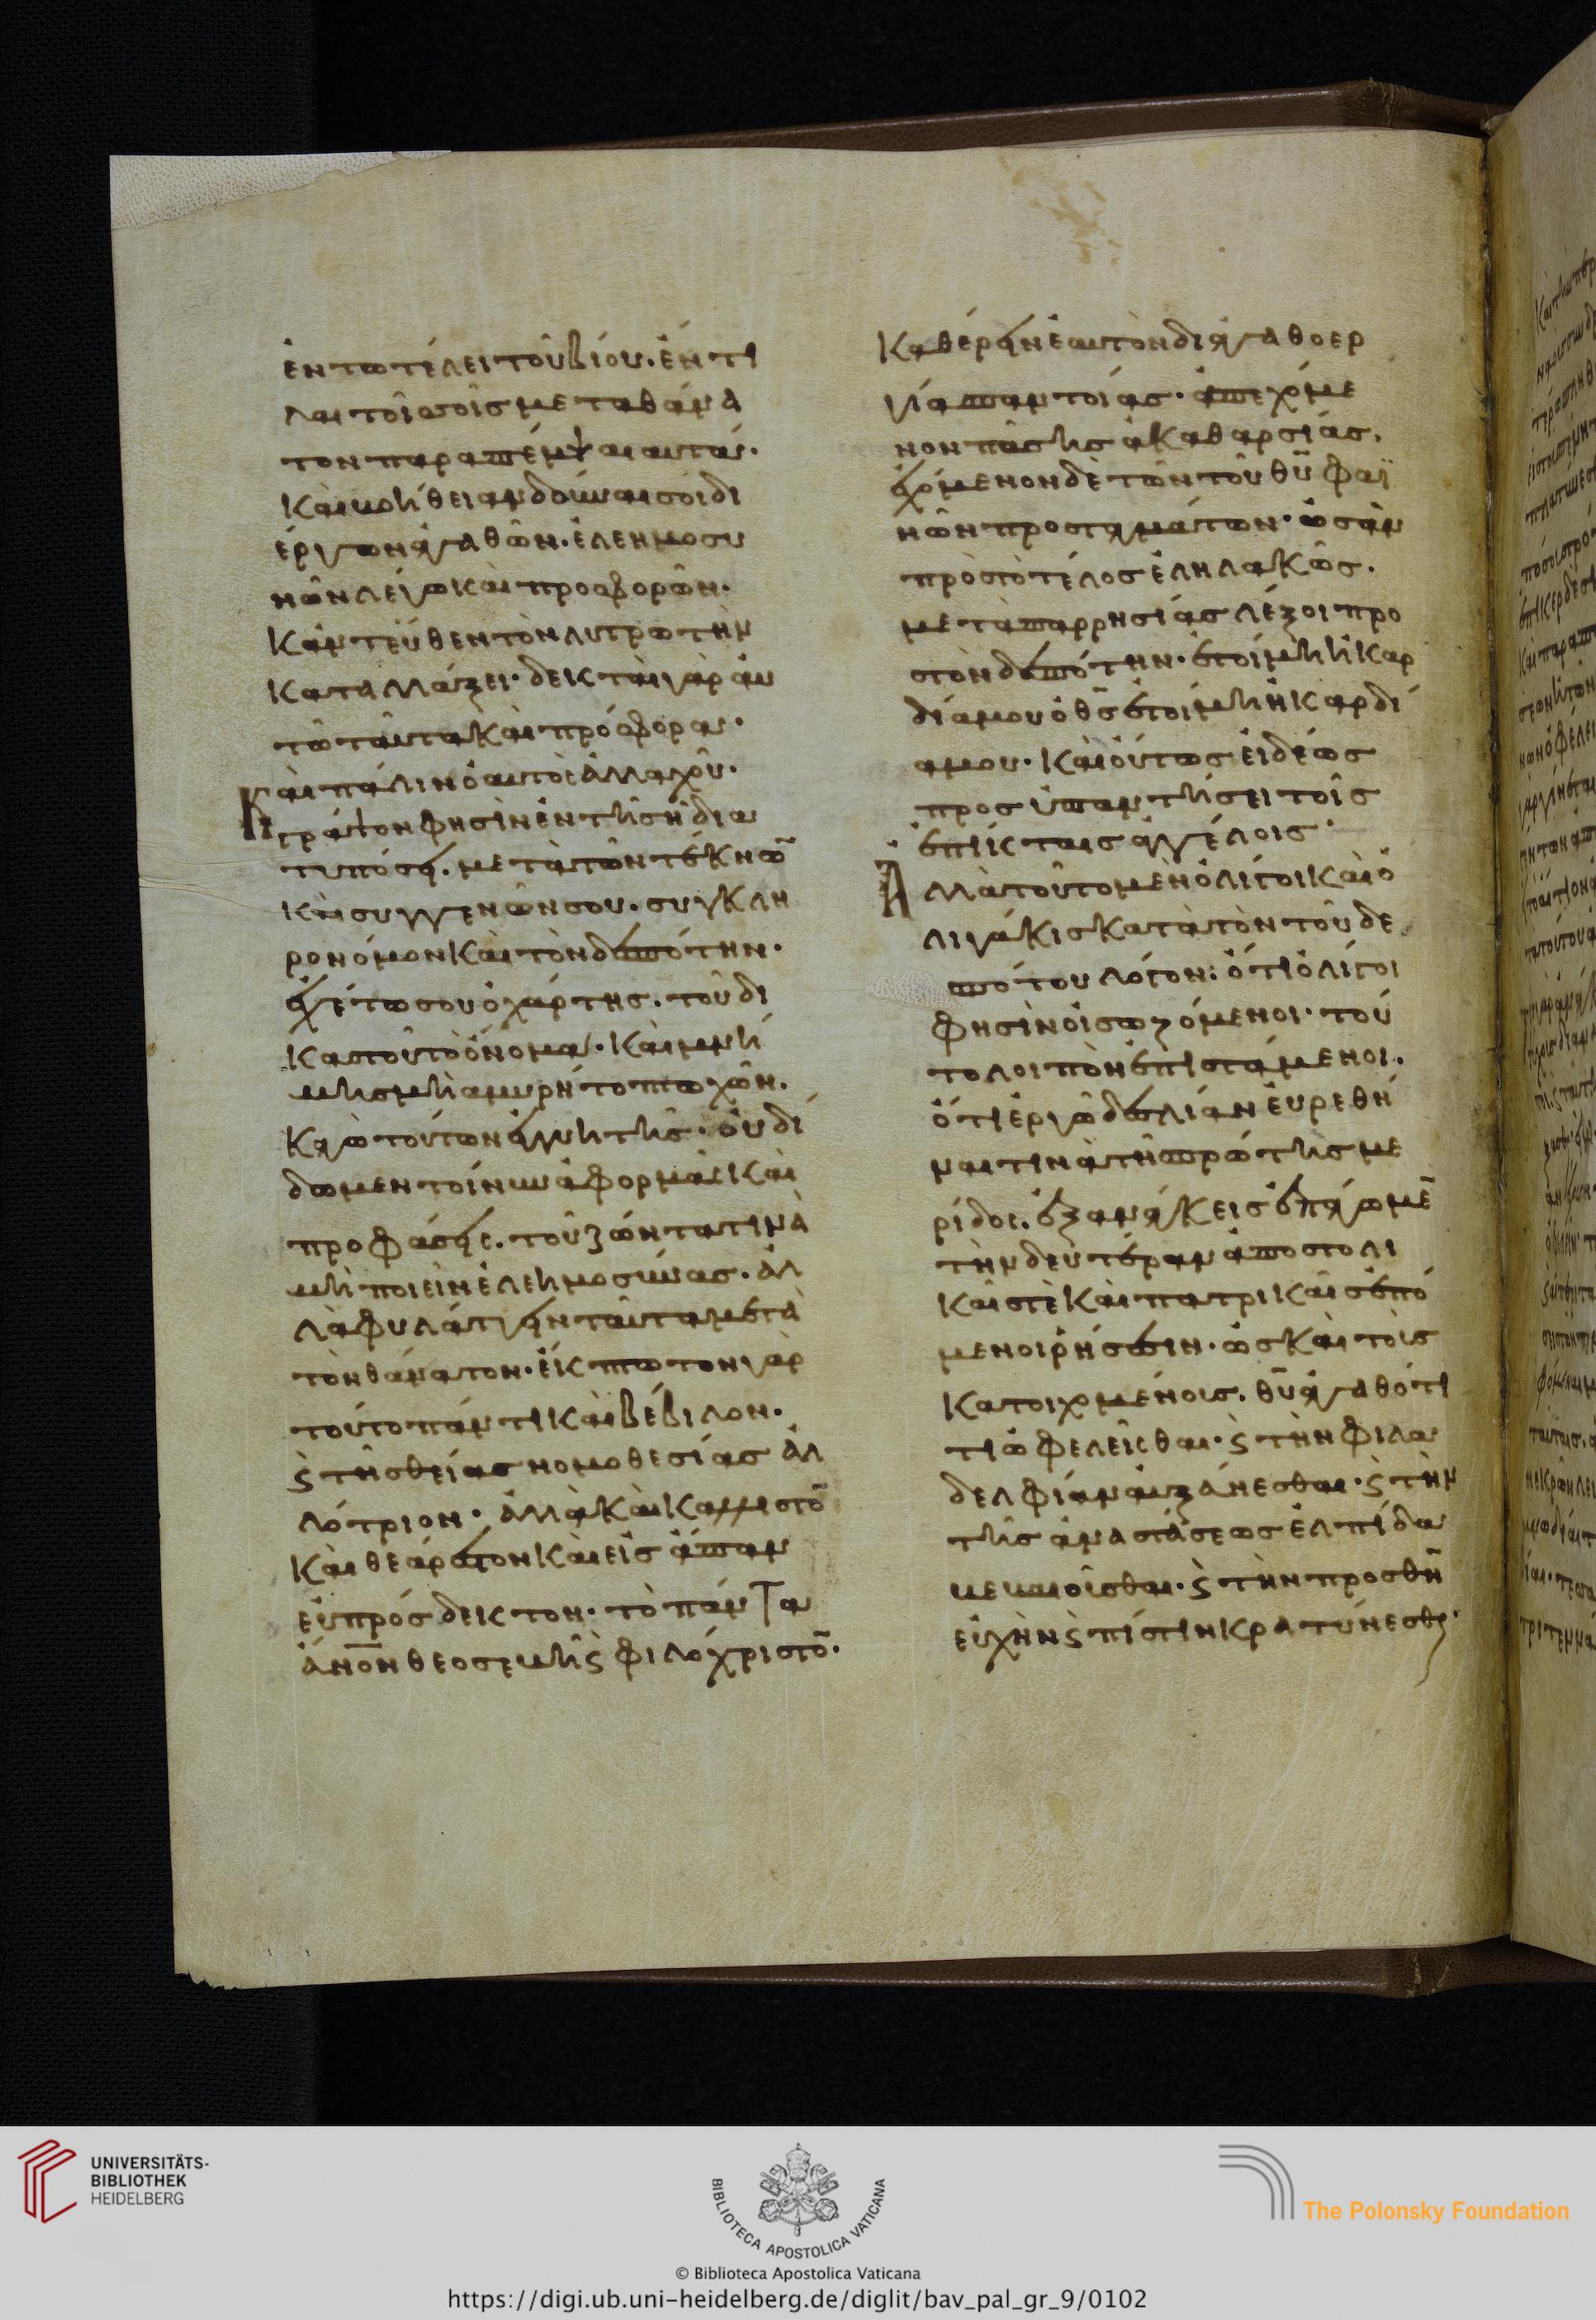 ἐν τῶ τέλει τοῦ βίου. ἐντι
λαι τοῖς σοῖς μετα θάνα
τον παραπέμψαι αυτά.
Καὶ βοήθειαν δοῦναι σοι δι
ἔργων ἀγαθῶν. ἐλεημοσυ
νῶν λέγω καὶ προσφορῶν.
Κἀντεῦθεν τὸν λυτρωτὴν
καταλλάξει. δεκταὶ γὰρ αυ
τῶ ταῦτα καὶ πρόσφορα.
Καὶ πάλιν ὁ αυτὸς ἀλλαχοῦ.
γράψον φησὶν ἐν τῆ σῆ δια
τυπόσει. μετὰ τῶν τέκνῶ̅
καὶ συγγενῶν σου. συγκλη
ρονόμον καὶ τὸν δεσπότην.
ἐχέτω σου ὁ χάρτης. τοῦ δι
καστοῦ τὸ ὄνομα. καὶ μνή
μης μὴ ἀμυρήτο πτωχῶν.
Κἀγὼ τούτων ἐγγυητής. οὐ δί
δωμεν τοίνυν ἀφορμὰς καὶ
προφάσεις. τοῦ ζῶντα τινὰ
μὴ ποιεῖν ἐλεημοσύνας. ἀλ
λὰ φυλάττειν ταῦτα μετὰ
τὸν θάνατον. ἔκπτωτον γὰρ
τοῦτο πάντι καὶ βέβιλον.
ϛ τῆς θείας νομοθεσίας ἀλ
λότριον. ἀλλὰ καὶ καλλιστο̅
καὶ θεάρεστον καὶ εἰς ἅπαν
εὐπρόσδεκτον. τὸ πάντα
ἄνο̅ν θεοσεβῆ ϛ φιλόχριστο̅.
Καθέρειν ἑαυτὸν δι ἀγαθοερ
γίας παντοίας. ἀπεχόμε
νον πάσης ἀκαθαρσίας.
ἐχόμενον δὲ τῶν τοῦ θυ̅ φαϊ
νῶν προσταγμάτων. ὡς ἂν
πρὸς τὸ τέλος ἐληλακῶς.
μετὰ παρρησίας λέξοι προ
στὸν δεσπότην. ἑτοίμη ἡ καρ
δία μου ὁ θς̅ ἑτοίμη ἡ καρδί
α μου. καὶ οὕτως εἰδέως
προσϋπαντήσει τοῖς
ἐπὶκταις ἀγγέλοις.
Ἀλλὰ τοῦτο μὲν ὀλίγοι καὶ ὀ
λιγάκις κατὰ τὸν τοῦ δε
σπότου λόγον. ὅτι ὀλίγοι
φησὶν οἱ σωζόμενοι. τοῦ
το λοιπὸν ἐπιστάμενοι.
ὅτι ἐργῶδες λίαν εὑρεθῆ
ναι τινὰ τῆς πρώτης με
ρίδος. ἐξ ἀνάγκεις ἐπάγωμε̅
τὴν δευτέραν ἀποστολι
καῖς τὲ καὶ πατρικαῖς ἑπό
μενοι ῥήσεσιν. ὡς καὶ τοῖς
κατοιχομένοις. θυ̅ ἀγαθότι
τι ὠφελεῖσθαι. ϛ τὴν φιλα
δελφίαν αυξάνεσθαι. ϛ τὴν
τῆς ἀναστάσεως ἐλπίδα
βεβαιοῦσθαι. ϛ τὴν πρὸς θν̅
εὐχὴν ϛ πίστιν κρατύνεσθαι.
UNIVERSITÄTS-
BIBLIOTHEK
HEIDELBERG
BIBLIOTECA APOSTOLICA VATICANA
The Polonsky Foundation
© Biblioteca Apostolica Vaticana
https://digi.ub.uni-heidelberg.de/diglit/bav_pal_gr_9/0102